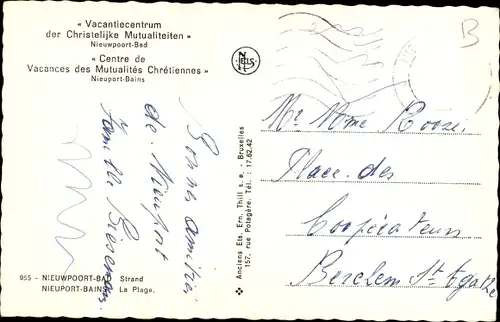 « Vacantiecentrum
der Christelijke Mutualiteiten »
Nieuwpoort-Bad
« Centre de
Vacances des Mutualités Chrétiennes »
Nieuport-Bains
NELS
B
Bonnes amitiés
de Nieuport
Famille
955 - NIEUWPOORT-BAD Strand
NIEUPORT-BAINS La Plage.
Anciens Ets. Ern. Thill s. a. - Bruxelles
157, rue Potagère. Tél. 17.62.42
Mr Mme Roose.
Place des
Coopérateurs
Berchem St Agathe